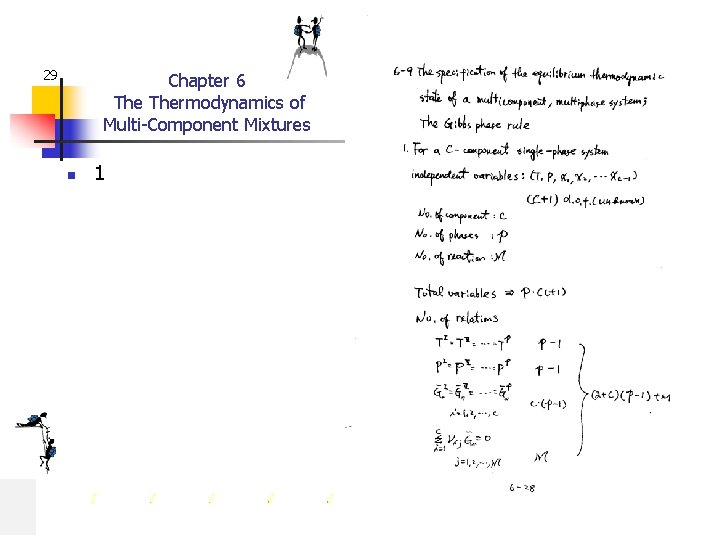 29
Chapter 6
The Thermodynamics of
Multi-Component Mixtures
1
6-9 The specification of the equilibrium thermodynamic
state of a multicomponent, multiphase system;
The Gibbs phase rule
1. For a C-component single-phase system
independent variables: (T, P, x₁, x₂, ... x_{C-1})
(C+1) d.o.f. (unknown)
No. of component : C
No. of phases : P
No. of reaction : M
Total variables ⇒ P·(C+1)
No. of relations
T^I = T^II = ... = T^P P-1
P^I = P^II = ... = P^P P-1
Ḡᵢ^I = Ḡᵢ^II = ... = Ḡᵢ^P C·(P-1) (2+C)(P-1)+M
i=1,2,...,C
Σ_{i=1}^{C} νᵢⱼ Ḡᵢ = 0 M
j=1,2,...,M
6-28